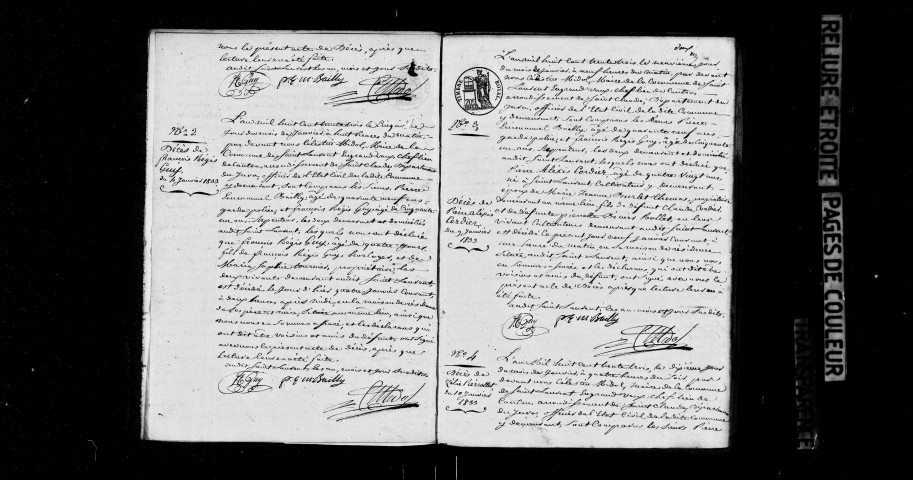 nous le présent acte de Décès, après que
lecture leur en a été faite.
audit Saint Laurent les an, mois et jour susdits.
R Guy p.E.m Bailly CMidol
N° 2
Décès de
françois Régis
Guy
du 4 Janvier 1833
L'an mil huit cent trente trois le cinquième
jour du mois de Janvier à huit heures du matin,
par devant nous Célestin Midol, Maire de la
Commune de Saint Laurent Grand vaux Chef lieu
de Canton, arrondissement de Saint Claude, Département
du Jura, officier de l'Etat Civil de ladite Commune
y demeurant, sont Comparus les Sieurs Pierre
Emmanuel Bailly âgé de quarante neuf ans
garde police, et françois Régis Guy, âgé de Cinquante
un ans, Serpentier, les deux demeurant et domiciliés
audit Saint Laurent, lesquels nous ont déclaré
que françois Régis Guy, âgé de quatre jours,
fils de françois Régis Guy, horloger, et de
Marie Sophie propriétaire, les
deux vivants demeurant audit Saint Laurent
est décédé le jour d'hier quatre Janvier Courant,
à deux heures après midi, en la maison de résidence
de ses père et mère, Sitée au même lieu, ainsi que
nous nous en sommes assuré, et les déclarants qui
ont dit être voisins et amis du défunt, ont signé
avec nous le présent acte de décès, après que
lecture leur en a été faite.
audit Saint Laurent les an, mois et jour susdits
R Guy p.E.m Bailly CMidol
TIMBRE ROYAL
N° 3
Décès de
Pierre Alexis
Cordier
du 9 Janvier
1833
L'an mil huit cent trente trois le neuvième jour
du mois de Janvier, à neuf heures du matin, par devant
nous Célestin Midol, Maire de la Commune de Saint
Laurent Grand vaux, Chef lieu de Canton
arrondissement de Saint Claude, Département du
Jura, officier de l'Etat Civil de ladite Commune
y demeurant, sont Comparus les Sieurs Pierre
Emmanuel Bailly âgé de quarante neuf ans,
garde police, et françois Régis Guy, âgé de Cinquante
un ans, Serpentier, les deux demeurant et domiciliés
audit Saint Laurent, lesquels nous ont déclaré que
Pierre Alexis Cordier, âgé de quatre vingt ans
né à Saint Laurent, Cultivateur y demeurant,
époux de Marie Jeanne propriétaire,
demeurant au même lieu, fils de défunt Claude Cordier
et de défunte pierrette en leur
vivant Cultivateurs demeurant audit Saint Laurent
est décédé le présent jour neuf Janvier Courant, à
une heure du matin, en sa maison de résidence
Sitée audit Saint Laurent, ainsi que nous nous
en sommes assuré, et les déclarants qui ont dit être
voisins et amis du défunt, ont signé avec nous le
présent acte de Décès après que lecture leur en a
été faite.
audit Saint Laurent, les an, mois et jour susdits.
R Guy p.E.m Bailly
CMidol
N° 4
Décès de
du 10 Janvier
1833
L'an mil huit cent trente trois, le dixième jour
du mois de Janvier, à quatre heures du soir, par
devant nous Célestin Midol, maire de la Commune
de Saint Laurent Grand vaux, Chef lieu de
Canton, arrondissement de Saint Claude, Département
du Jura, officier de l'Etat Civil de ladite Commune
y demeurant, sont Comparus les Sieurs Pierre
RELIURE ETROITE
PAGES DE COULEUR
TRANSPARENCE